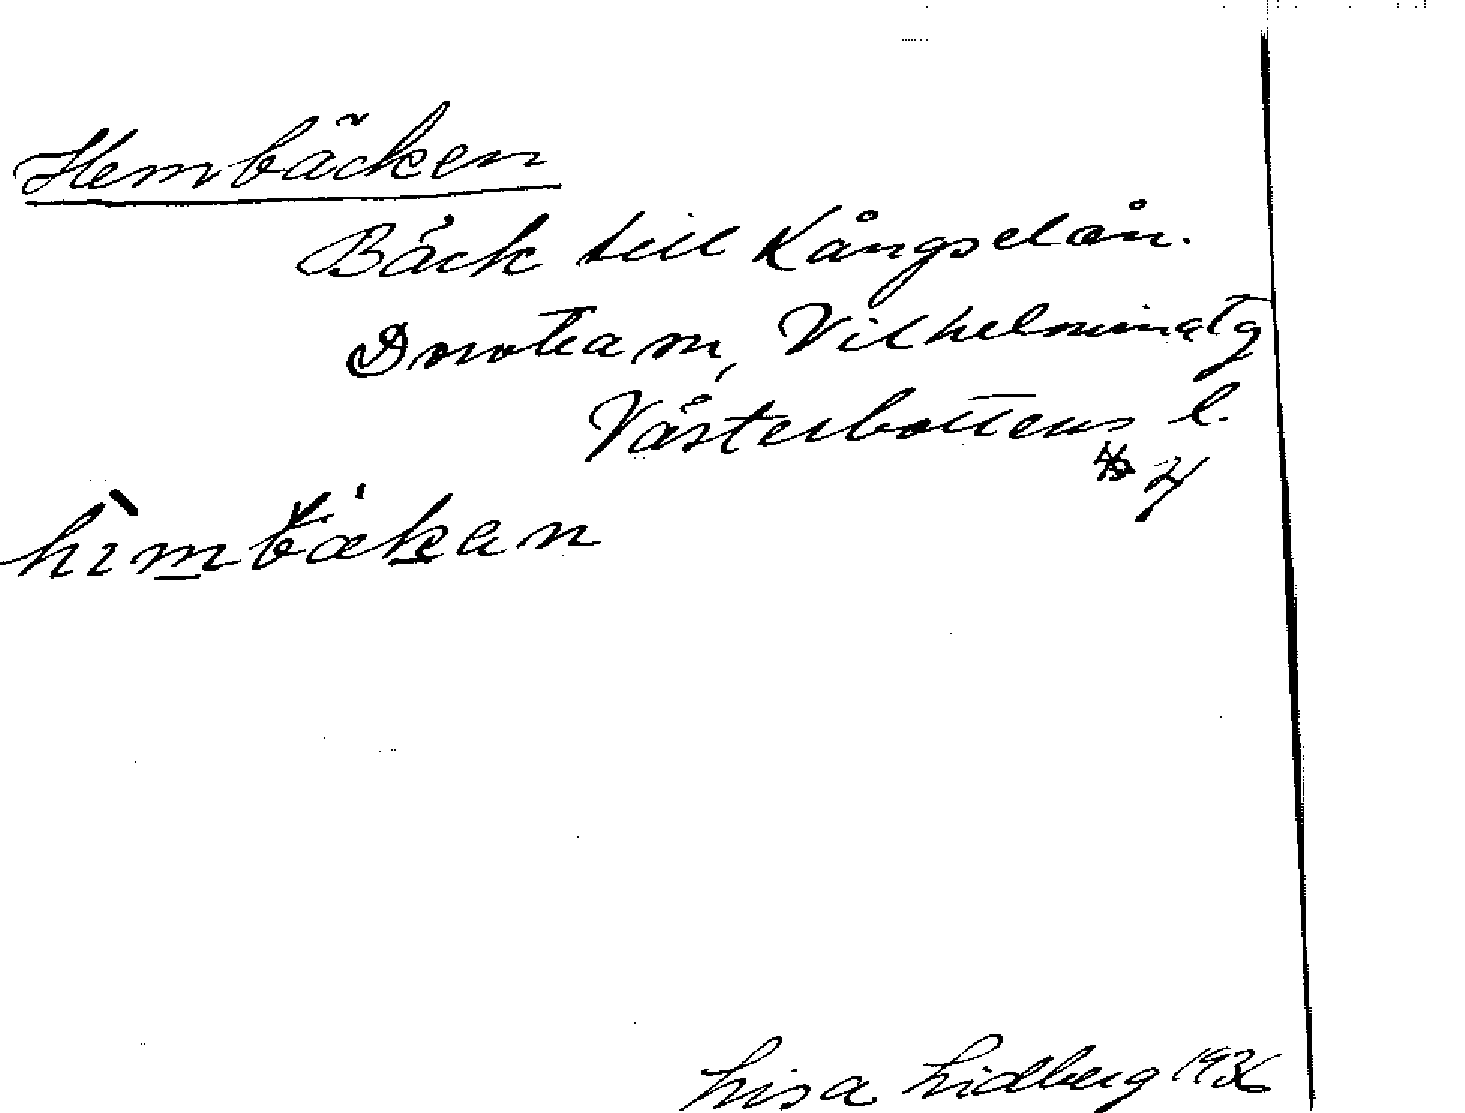 Hembäcken
Bäck till Kångselån.
Dorotea sn, Vilhelmina tg
Västerbottens l.
4
himbækan
Lisa Lidberg 1936